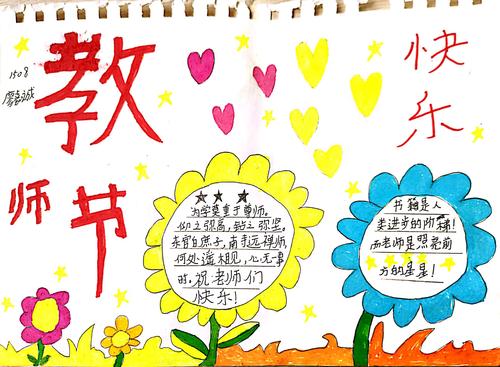 教
师
节
快
乐
1508
为学莫重于尊师。
仰之弥高,钻之弥坚。
东宫白庶子,南寺远禅师
何处遥相见,心无一事
时。祝老师们
快乐!
书籍是人
类进步的阶梯!
而老师是照亮前
方的星星!